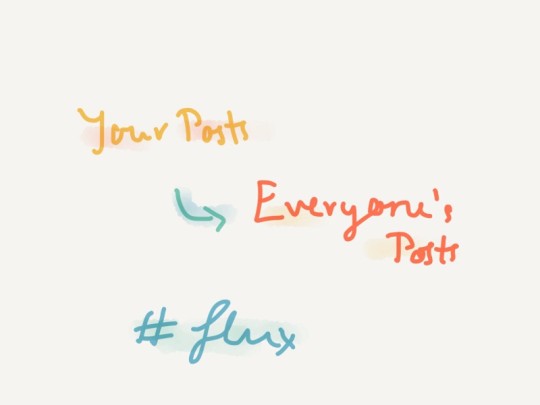 Your Posts
Everyone's
Posts
# flux